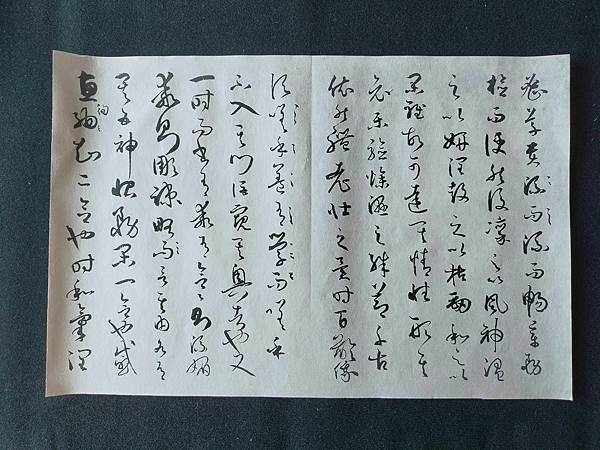 密草貴流而流而暢章務
檢而便然後凜之以風神溫
之以妍潤鼓之以枯勁和之以
閑雅故可達其情性形其
哀樂驗燥濕之殊節千古
依然體老壯之異時百齡俄
頃嗟乎蓋有學而嗟乎
不入其門詎窺其奧者也又
一時而書有乖有合合則流媚
乖則彫疎略而言其由各有
其五神怡務閑一合也感
惠徇知二合也時和氣潤